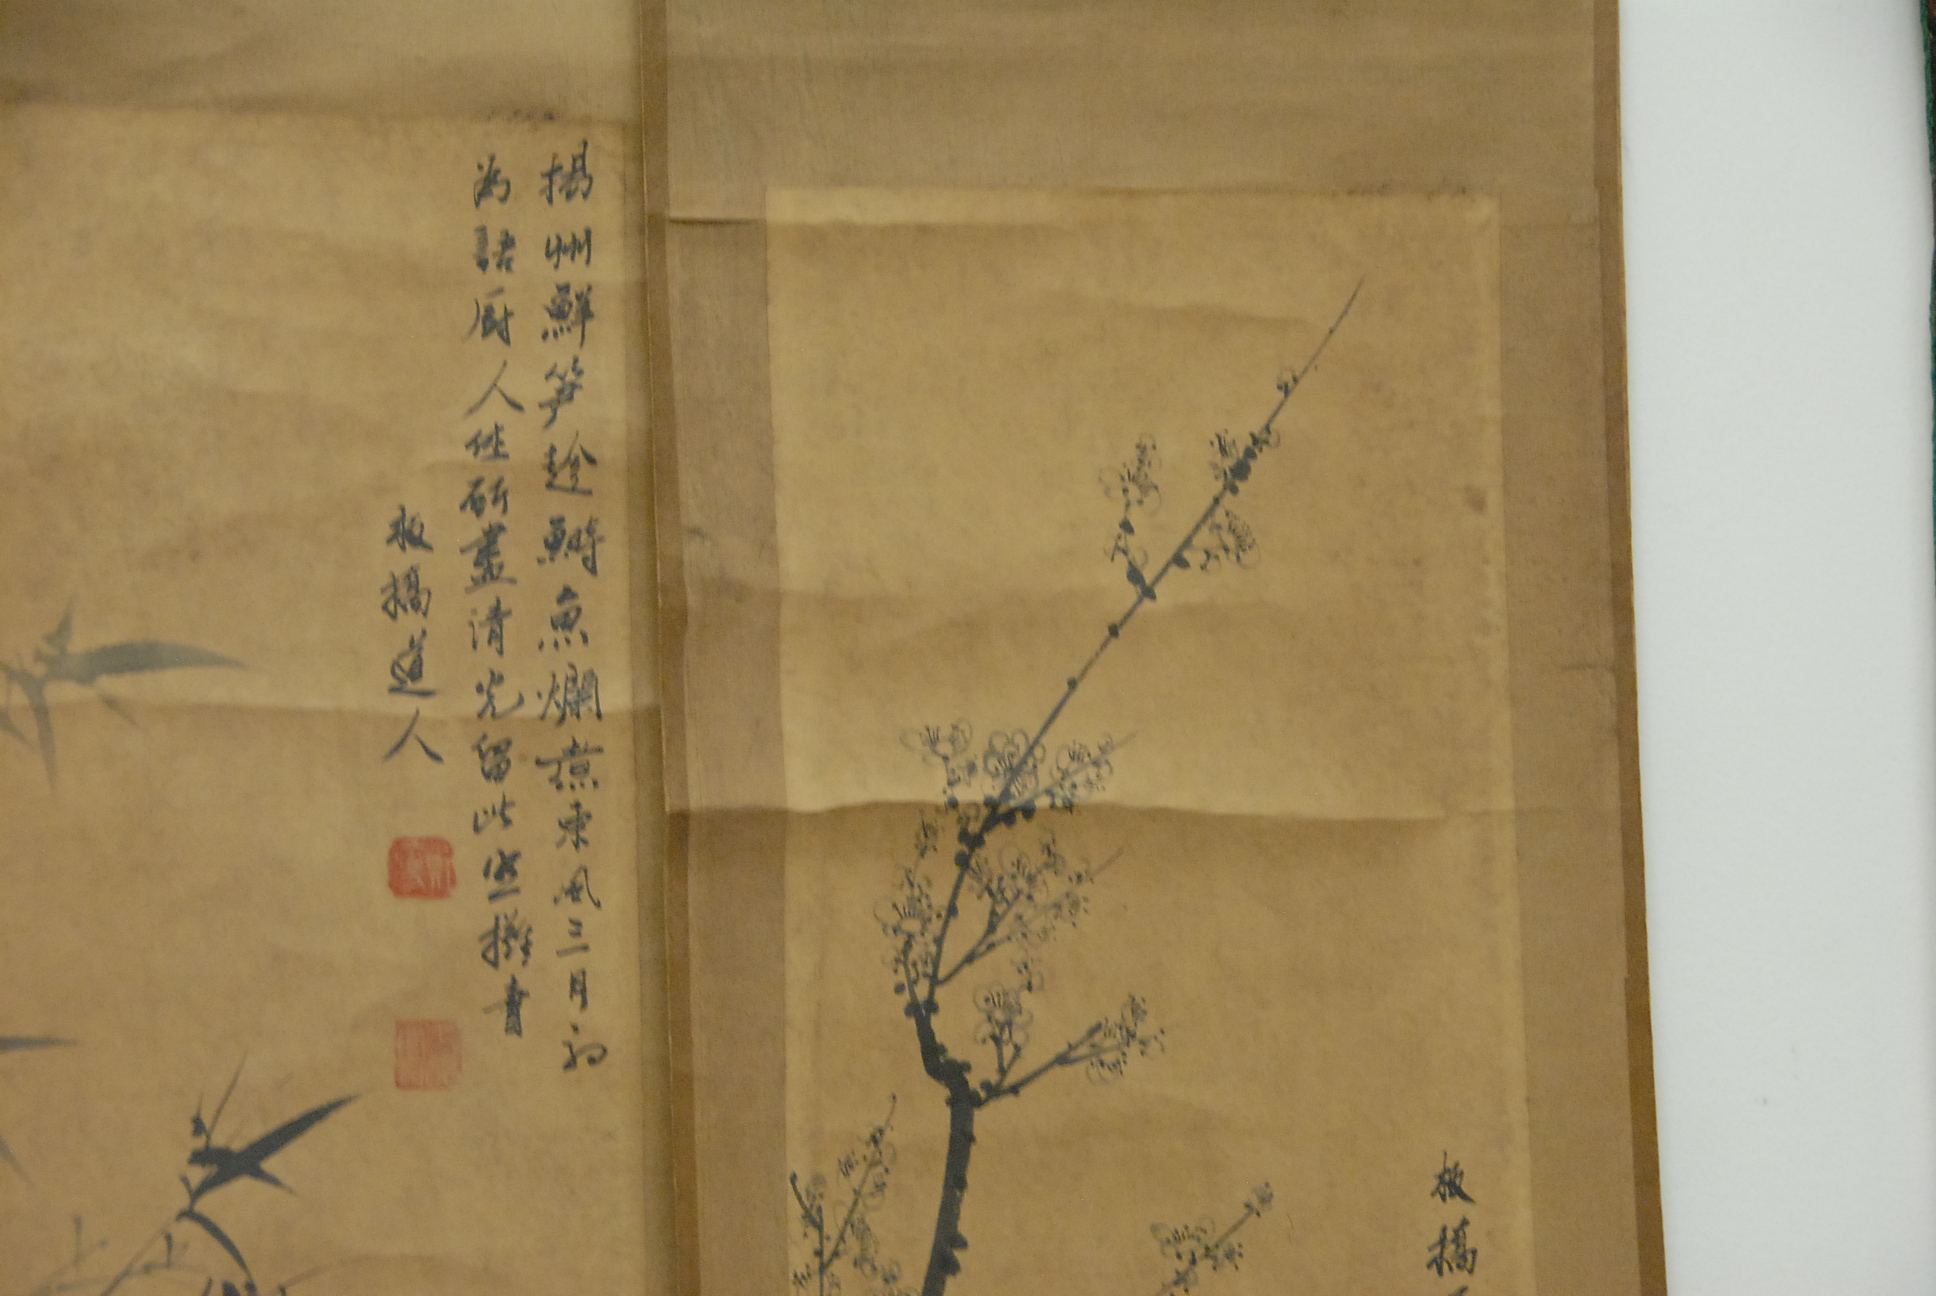 揚州鮮笋趂鰣魚爛煮東風三月初
為語厨人休斫盡清光留此照攤書
板橋道人
板橋